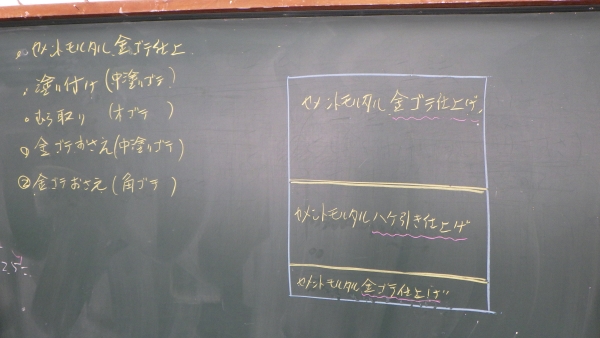 セメントモルタル 金ゴテ仕上
塗り付け (中塗りゴテ)
むら取り (木ゴテ)
① 金ゴテおさえ (中塗りゴテ)
② 金ゴテおさえ (角ゴテ)
セメントモルタル 金ゴテ仕上げ
セメントモルタル ハケ引き仕上げ
セメントモルタル 金ゴテ仕上げ